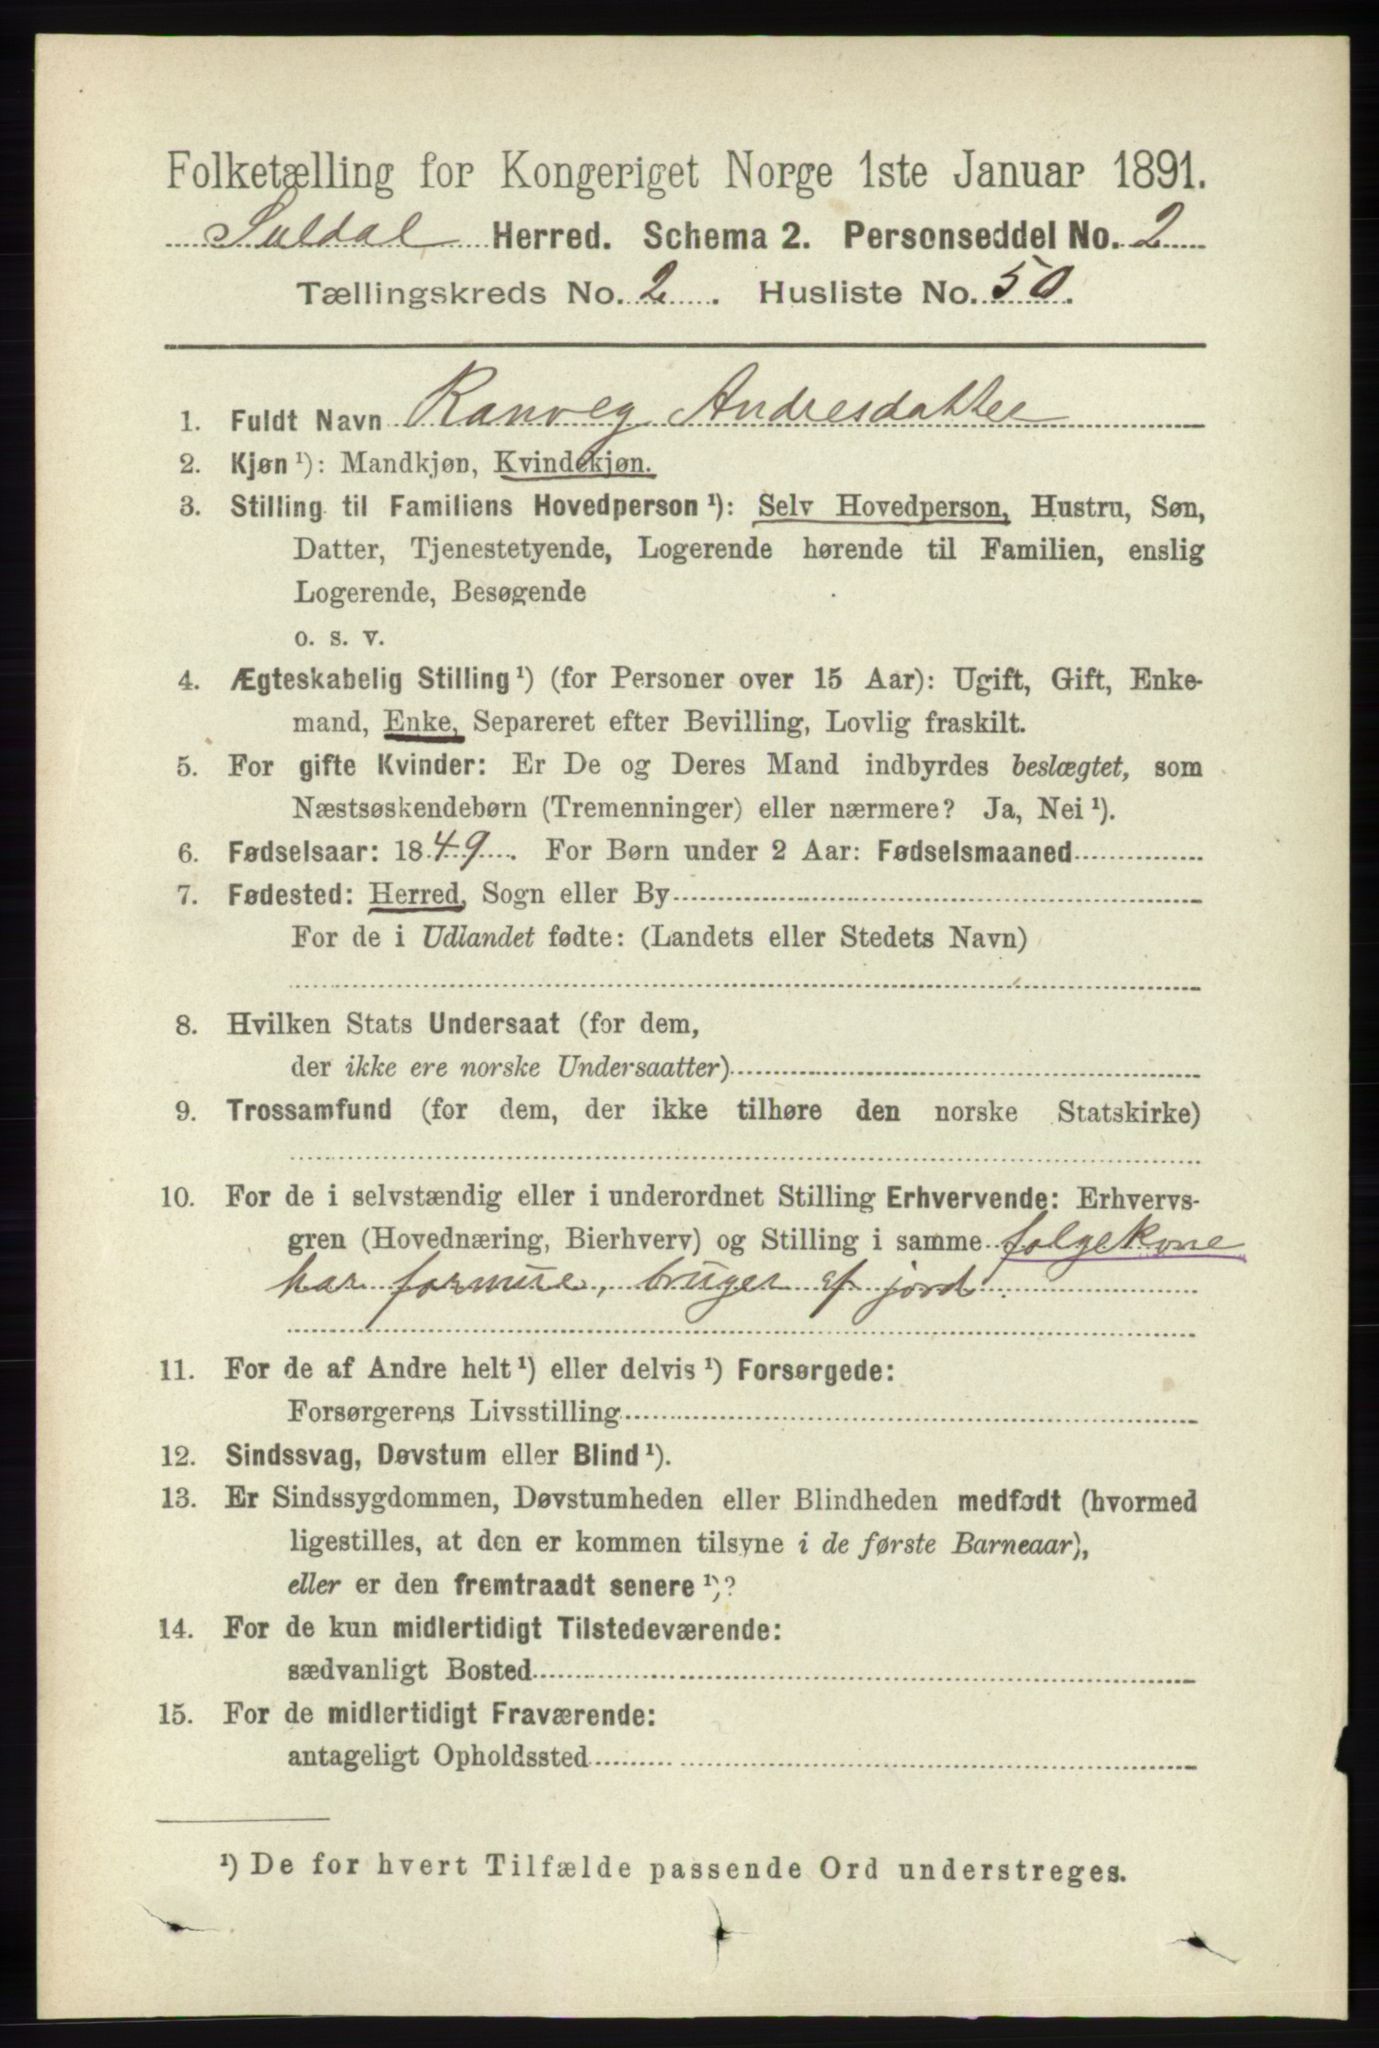 Folketælling for Kongeriget Norge 1ste Januar 1891.
Suldal Herred. Schema 2. Personseddel No. 2
Tællingskreds No. 2. Husliste No. 50.
1. Fuldt Navn Ranveg Andresdatter
2. Kjøn ¹): Mandkjøn, Kvindekjøn.
3. Stilling til Familiens Hovedperson ¹): Selv Hovedperson, Hustru, Søn,
Datter, Tjenestetyende, Logerende hørende til Familien, enslig
Logerende, Besøgende
o. s. v.
4. Ægteskabelig Stilling ¹) (for Personer over 15 Aar): Ugift, Gift, Enke-
mand, Enke, Separeret efter Bevilling, Lovlig fraskilt.
5. For gifte Kvinder: Er De og Deres Mand indbyrdes beslægtet, som
Næstsøskendebørn (Tremenninger) eller nærmere? Ja, Nei ¹).
6. Fødselsaar: 1849. For Børn under 2 Aar: Fødselsmaaned
7. Fødested: Herred, Sogn eller By
For de i Udlandet fødte: (Landets eller Stedets Navn)
8. Hvilken Stats Undersaat (for dem,
der ikke ere norske Undersaatter)
9. Trossamfund (for dem, der ikke tilhøre den norske Statskirke)
10. For de i selvstændig eller i underordnet Stilling Erhvervende: Erhvervs-
gren (Hovednæring, Bierhverv) og Stilling i samme folgekone
har formue, bruger af jord
11. For de af Andre helt ¹) eller delvis ¹) Forsørgede:
Forsørgerens Livsstilling
12. Sindssvag, Døvstum eller Blind ¹).
13. Er Sindssygdommen, Døvstumheden eller Blindheden medfødt (hvormed
ligestilles, at den er kommen tilsyne i de første Barneaar),
eller er den fremtraadt senere ¹)?
14. For de kun midlertidigt Tilstedeværende:
sædvanligt Bosted
15. For de midlertidigt Fraværende:
antageligt Opholdssted
¹) De for hvert Tilfælde passende Ord understreges.